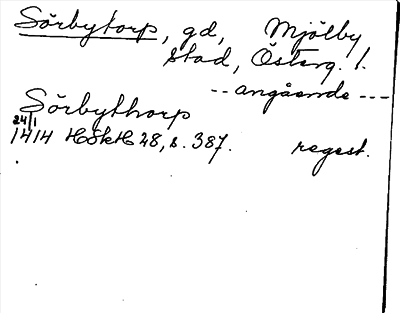 Sörbytorp, gd, Mjölby
stad, Österg. l.
-- angående ---
Sörbythorp
24/1
1414 HSkH 28, s. 387. regest.